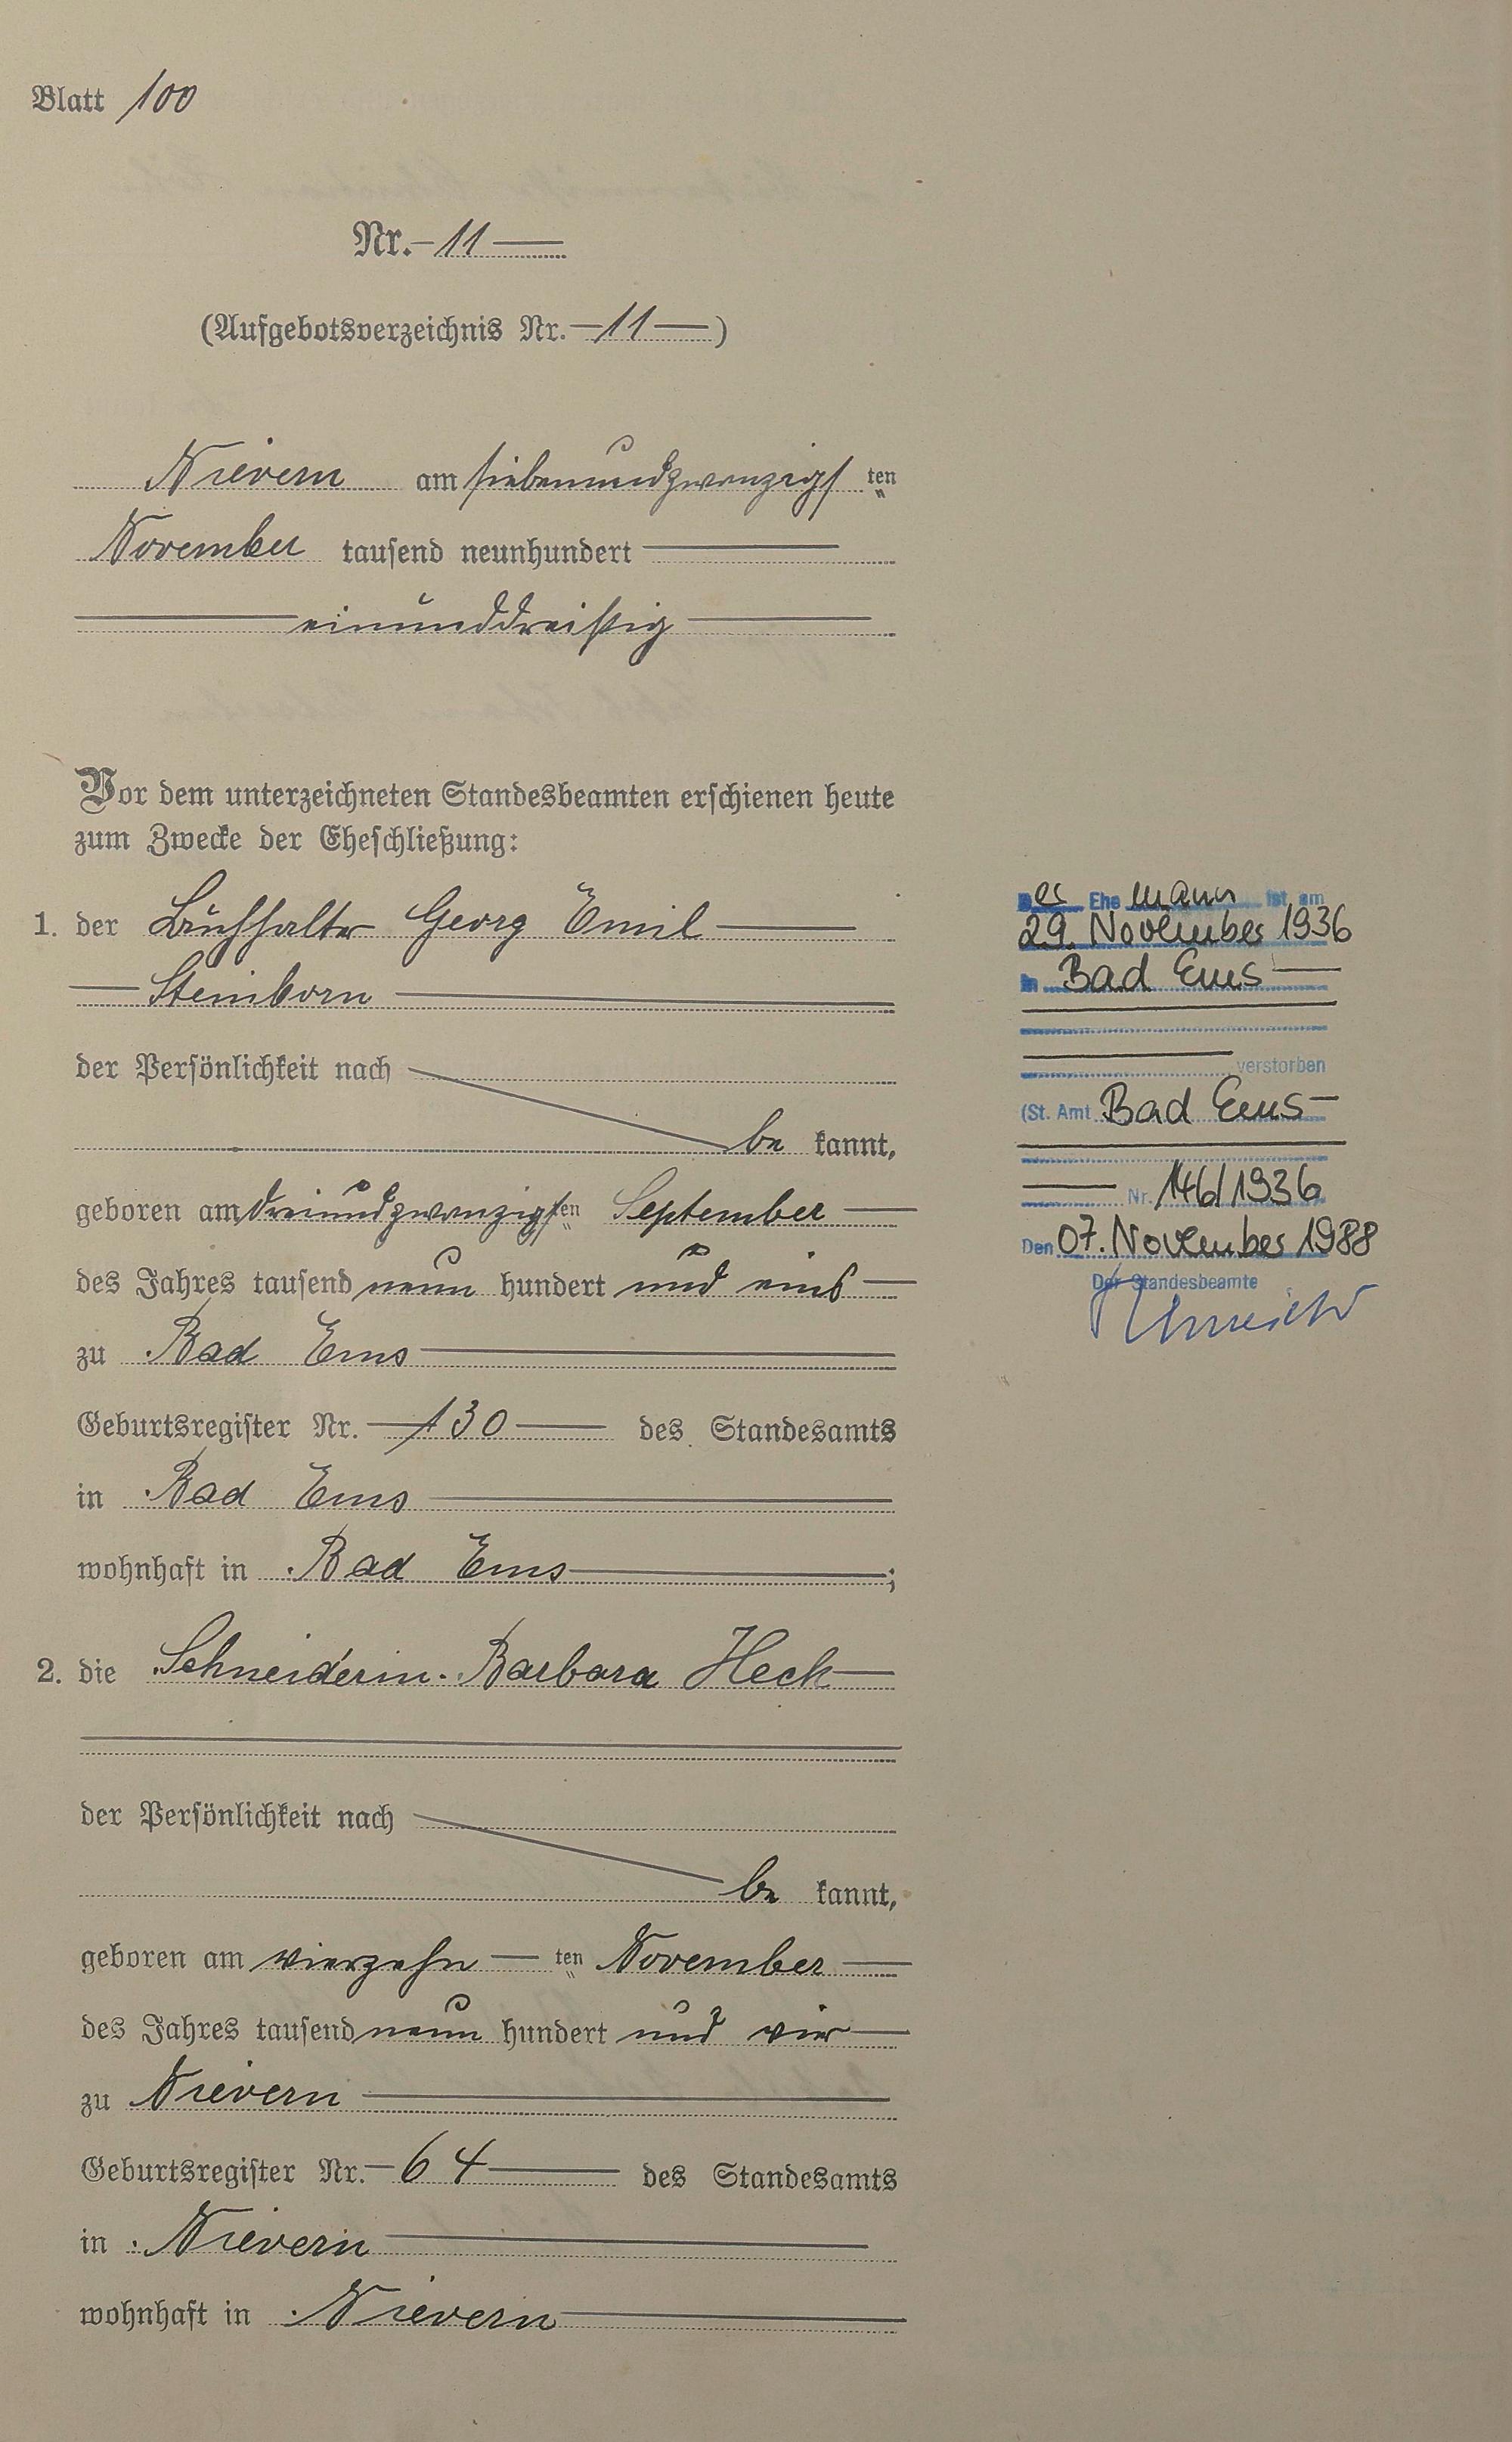 Blatt 100
Nr. 11
(Aufgebotsverzeichnis Nr. 11)
Nievern am siebenundzwanzigsten
November tausend neunhundert
einunddreißig
Vor dem unterzeichneten Standesbeamten erschienen heute
zum Zwecke der Eheschließung:
1. der Buchhalter Georg Emil
Steinborn
der Persönlichkeit nach
be kannt,
geboren am dreiundzwanzigsten September
des Jahres tausend neun hundert und eins
zu Bad Ems
Geburtsregister Nr. 130 des Standesamts
in Bad Ems
wohnhaft in Bad Ems;
2. die Schneiderin Barbara Heck
der Persönlichkeit nach
be kannt,
geboren am vierzehn ten November
des Jahres tausend neun hundert und vier
zu Nievern
Geburtsregister Nr. 64 des Standesamts
in Nievern
wohnhaft in Nievern
Der Ehemann ist am
29. November 1936
in Bad Ems
verstorben
(St. Amt Bad Ems
Nr. 146/1936
Den 07. November 1988
Der Standesbeamte